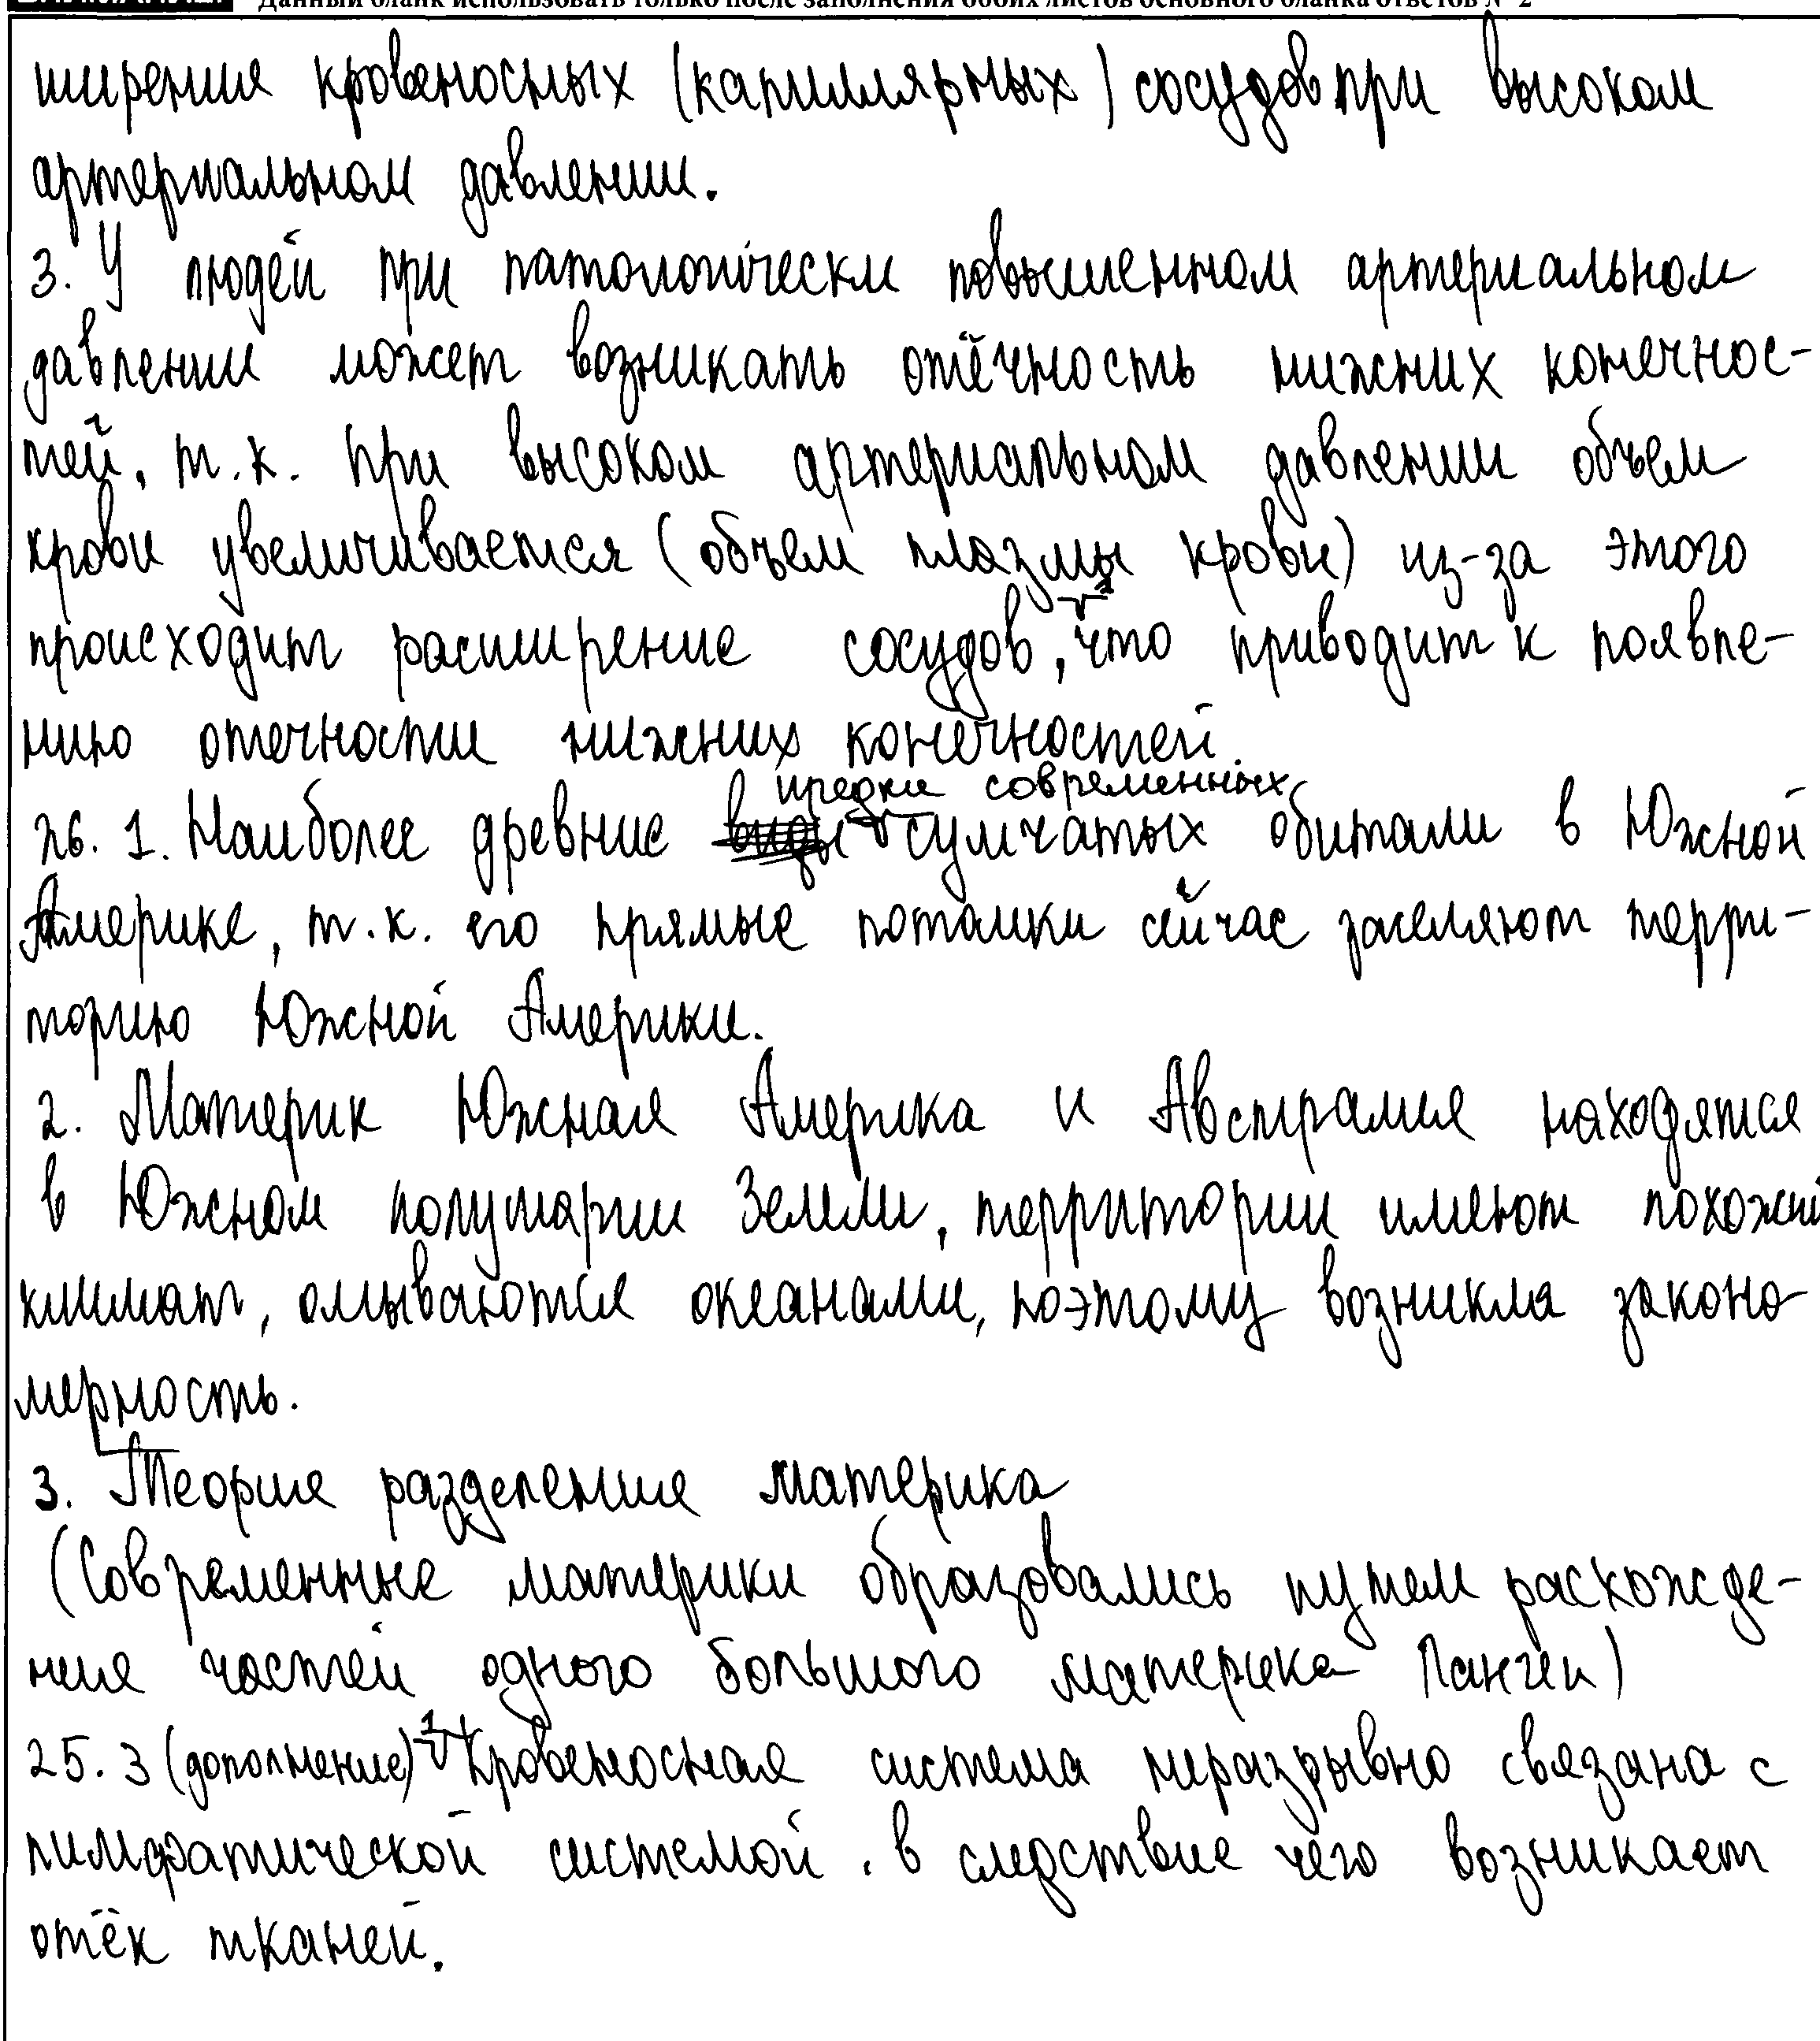 Данный бланк использовать только после заполнения обоих листов основного бланка ответов № 2
ширения кровеносных (капиллярных) сосудов при высоком
артериальном давлении.
3. У людей при патологически повышенном артериальном
давлении может возникать отёчность нижних конечнос-
тей, т.к. при высоком артериальном давлении объем
крови увеличивается (объем плазмы крови) из-за этого
происходит расширение сосудов, что приводит к появле-
нию отечности нижних конечностей.
предки современных
26. 1. Наиболее древние виды сумчатых обитали в Южной
Америке, т.к. его прямые потомки сейчас заселяют терри-
торию Южной Америки.
2. Материк Южная Америка и Австралия находятся
в Южном полушарии Земли, территории имеют похожий
климат, омываются океанами, поэтому возникла законо-
мерность.
3. Теория разделения материка
(Современные материки образовались путем расхожде-
ния частей одного большого материка Пангеи)
25. 3 (дополнение) 1 Кровеносная система неразрывно связана с
лимфатической системой, в следствие чего возникает
отёк тканей.